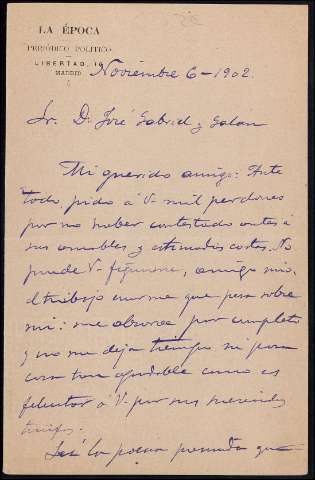 LA ÉPOCA
PERIÓDICO POLÍTICO
LIBERTAD, 16
MADRID
Noviembre 6-1902.
Sr. D. José Gabriel y Galán
Mi querido amigo: Ante
todo pido á V. mil perdones
por no haber contestado antes á
sus amables y estimadas cartas. No
puede V. figurarse, amigo mio,
el trabajo enorme que pesa sobre
mi: me absorve por completo
y no me deja tiempo ni para
cosa tan agradable como es
felicitar á V. por sus merecidos
triunfos.
Leí la poesia premiada que